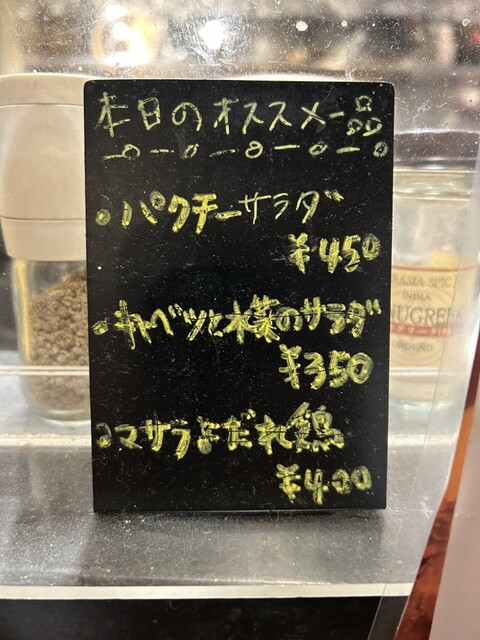 本日のオススメ一品
・パクチーサラダ
¥450
・キャベツと水菜のサラダ
¥350
・マサラよだれ鶏
¥400
INDIA